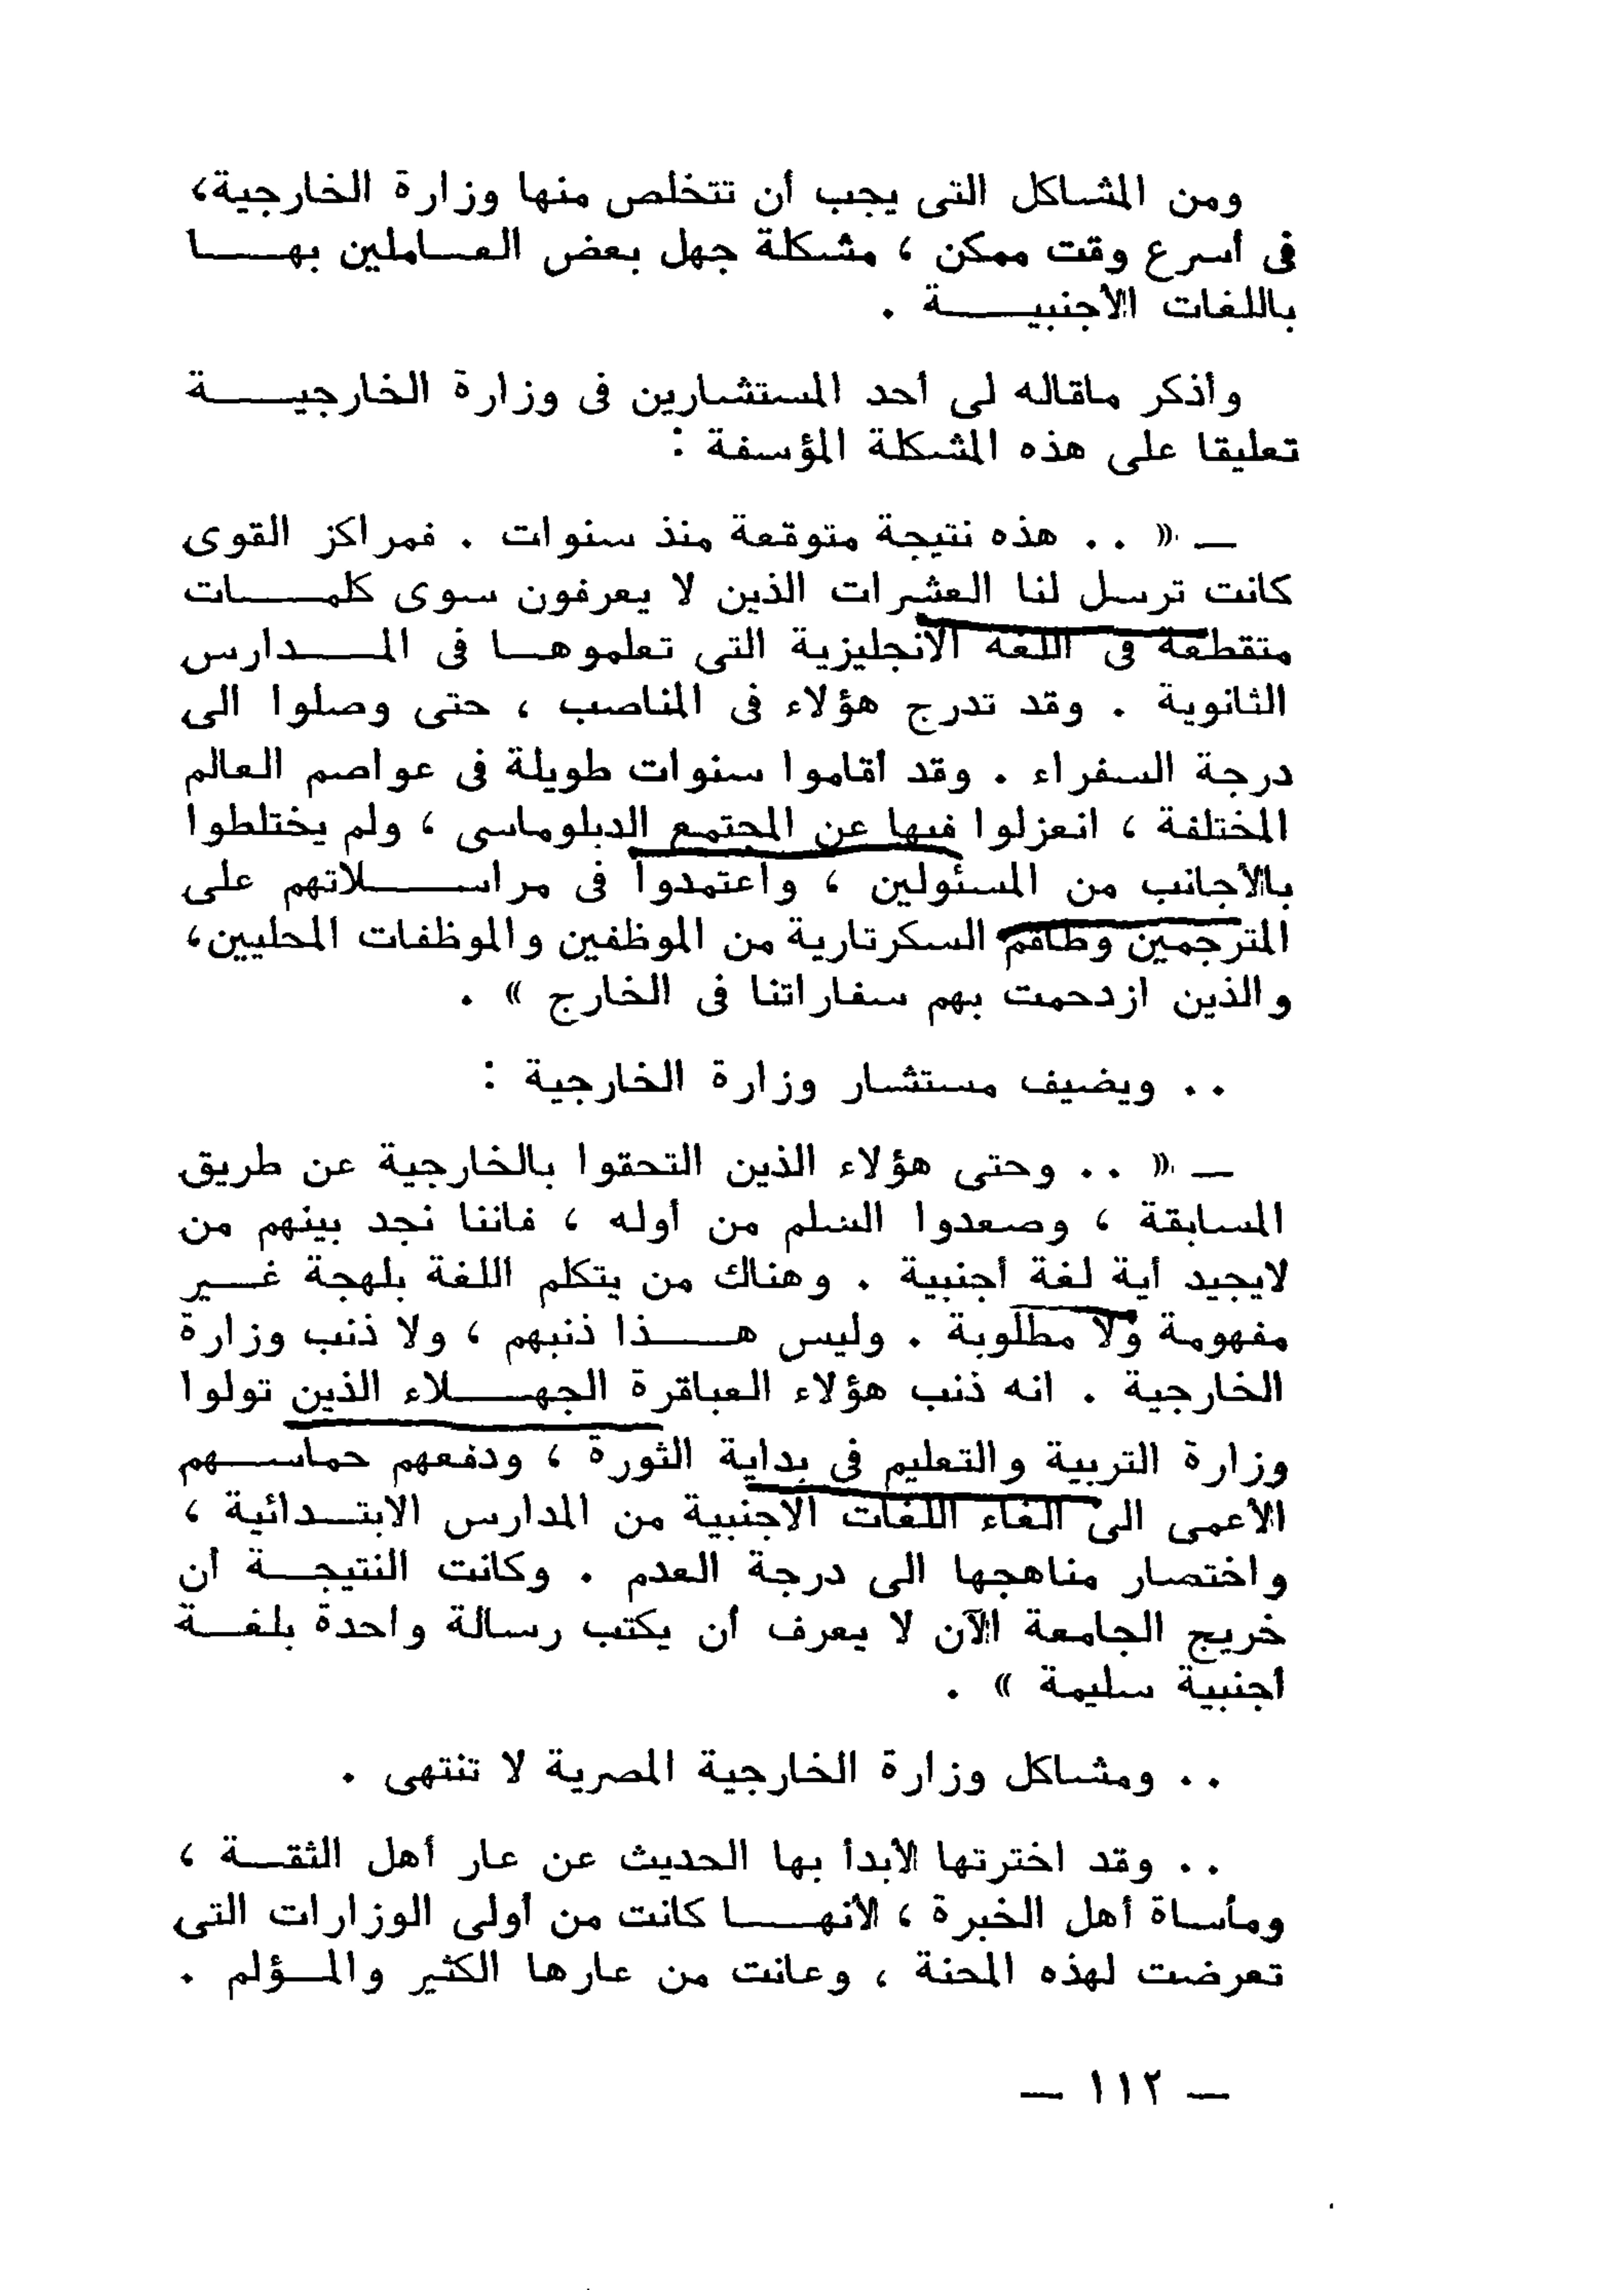 ومن المشاكل التى يجب أن تتخلص منها وزارة الخارجية،
فى أسرع وقت ممكن ، مشكلة جهل بعض العاملين بها
باللغات الأجنبية .
وأذكر ماقاله لى أحد المستشارين فى وزارة الخارجية
تعليقا على هذه المشكلة المؤسفة :
ـ « . . هذه نتيجة متوقعة منذ سنوات . فمراكز القوى
كانت ترسل لنا العشرات الذين لا يعرفون سوى كلمات
متقطعة فى اللغة الانجليزية التى تعلموها فى المدارس
الثانوية . وقد تدرج هؤلاء فى المناصب ، حتى وصلوا الى
درجة السفراء . وقد أقاموا سنوات طويلة فى عواصم العالم
المختلفة ، انعزلوا فيها عن المجتمع الدبلوماسى ، ولم يختلطوا
بالأجانب من المسئولين ، واعتمدوا فى مراسلاتهم على
المترجمين وطاقم السكرتارية من الموظفين والموظفات المحليين،
والذين ازدحمت بهم سفاراتنا فى الخارج » .
. . ويضيف مستشار وزارة الخارجية :
ـ « . . وحتى هؤلاء الذين التحقوا بالخارجية عن طريق
المسابقة ، وصعدوا السلم من أوله ، فاننا نجد بينهم من
لايجيد أية لغة أجنبية . وهناك من يتكلم اللغة بلهجة غير
مفهومة ولا مطلوبة . وليس هذا ذنبهم ، ولا ذنب وزارة
الخارجية . انه ذنب هؤلاء العباقرة الجهلاء الذين تولوا
وزارة التربية والتعليم فى بداية الثورة ، ودفعهم حماسهم
الأعمى الى الغاء اللغات الأجنبية من المدارس الابتدائية ،
واختصار مناهجها الى درجة العدم . وكانت النتيجة أن
خريج الجامعة الآن لا يعرف أن يكتب رسالة واحدة بلغة
أجنبية سليمة » .
. . ومشاكل وزارة الخارجية المصرية لا تنتهى .
. . وقد اخترتها لأبدأ بها الحديث عن عار أهل الثقة ،
ومأساة أهل الخبرة ، لأنها كانت من أولى الوزارات التى
تعرضت لهذه المحنة ، وعانت من عارها الكثير والمؤلم .
— ١١٢ —